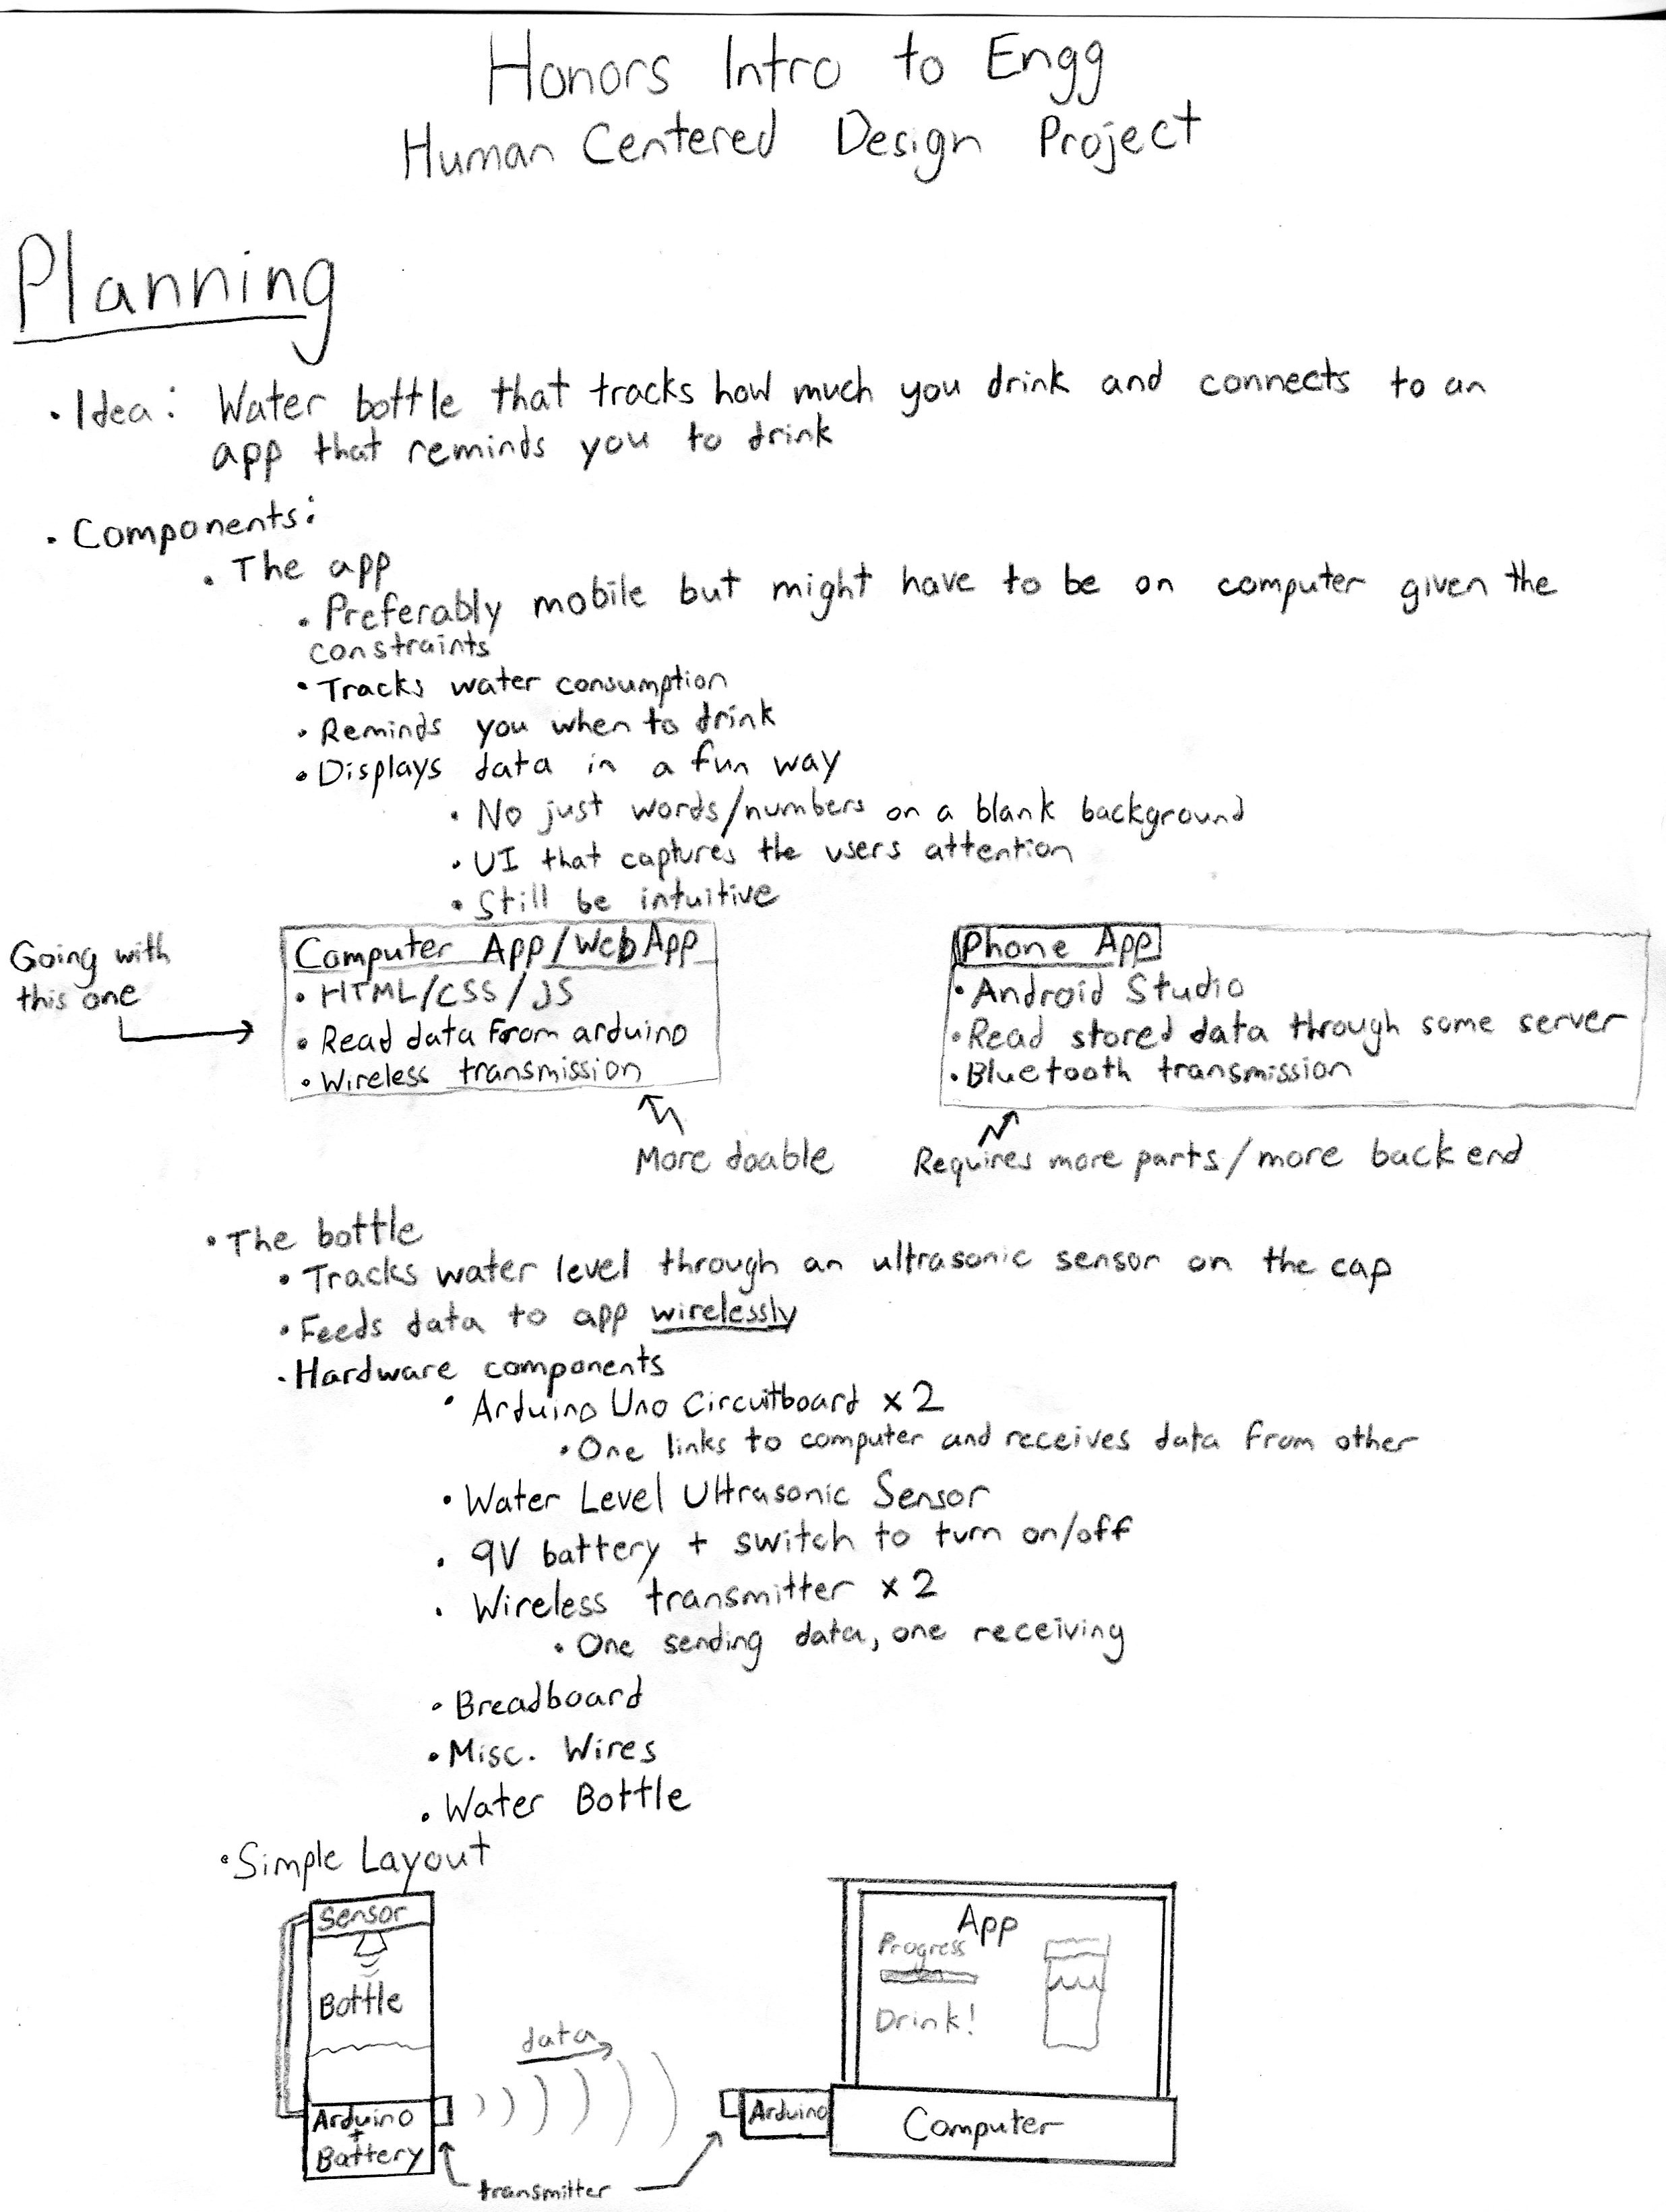 Honors Intro to Engg
Human Centered Design Project
Planning
• Idea: Water bottle that tracks how much you drink and connects to an
app that reminds you to drink
• Components:
• The app
• Preferably mobile but might have to be on computer given the
constraints
• Tracks water consumption
• Reminds you when to drink
• Displays data in a fun way
• No just words/numbers on a blank background
• UI that captures the users attention
• Still be intuitive
Going with
this one
Computer App/Web App
• HTML/CSS/JS
• Read data from arduino
• Wireless transmission
More doable
Phone App
• Android Studio
• Read stored data through some server
• Bluetooth transmission
Requires more parts/more back end
• The bottle
• Tracks water level through an ultrasonic sensor on the cap
• Feeds data to app wirelessly
• Hardware components
• Arduino Uno Circuitboard x2
• One links to computer and receives data from other
• Water Level Ultrasonic Sensor
• 9V battery + switch to turn on/off
• Wireless transmitter x2
• One sending data, one receiving
• Breadboard
• Misc. Wires
• Water Bottle
• Simple Layout
Sensor
Bottle
Arduino
+
Battery
data
transmitter
App
Progress
Drink!
Arduino
Computer